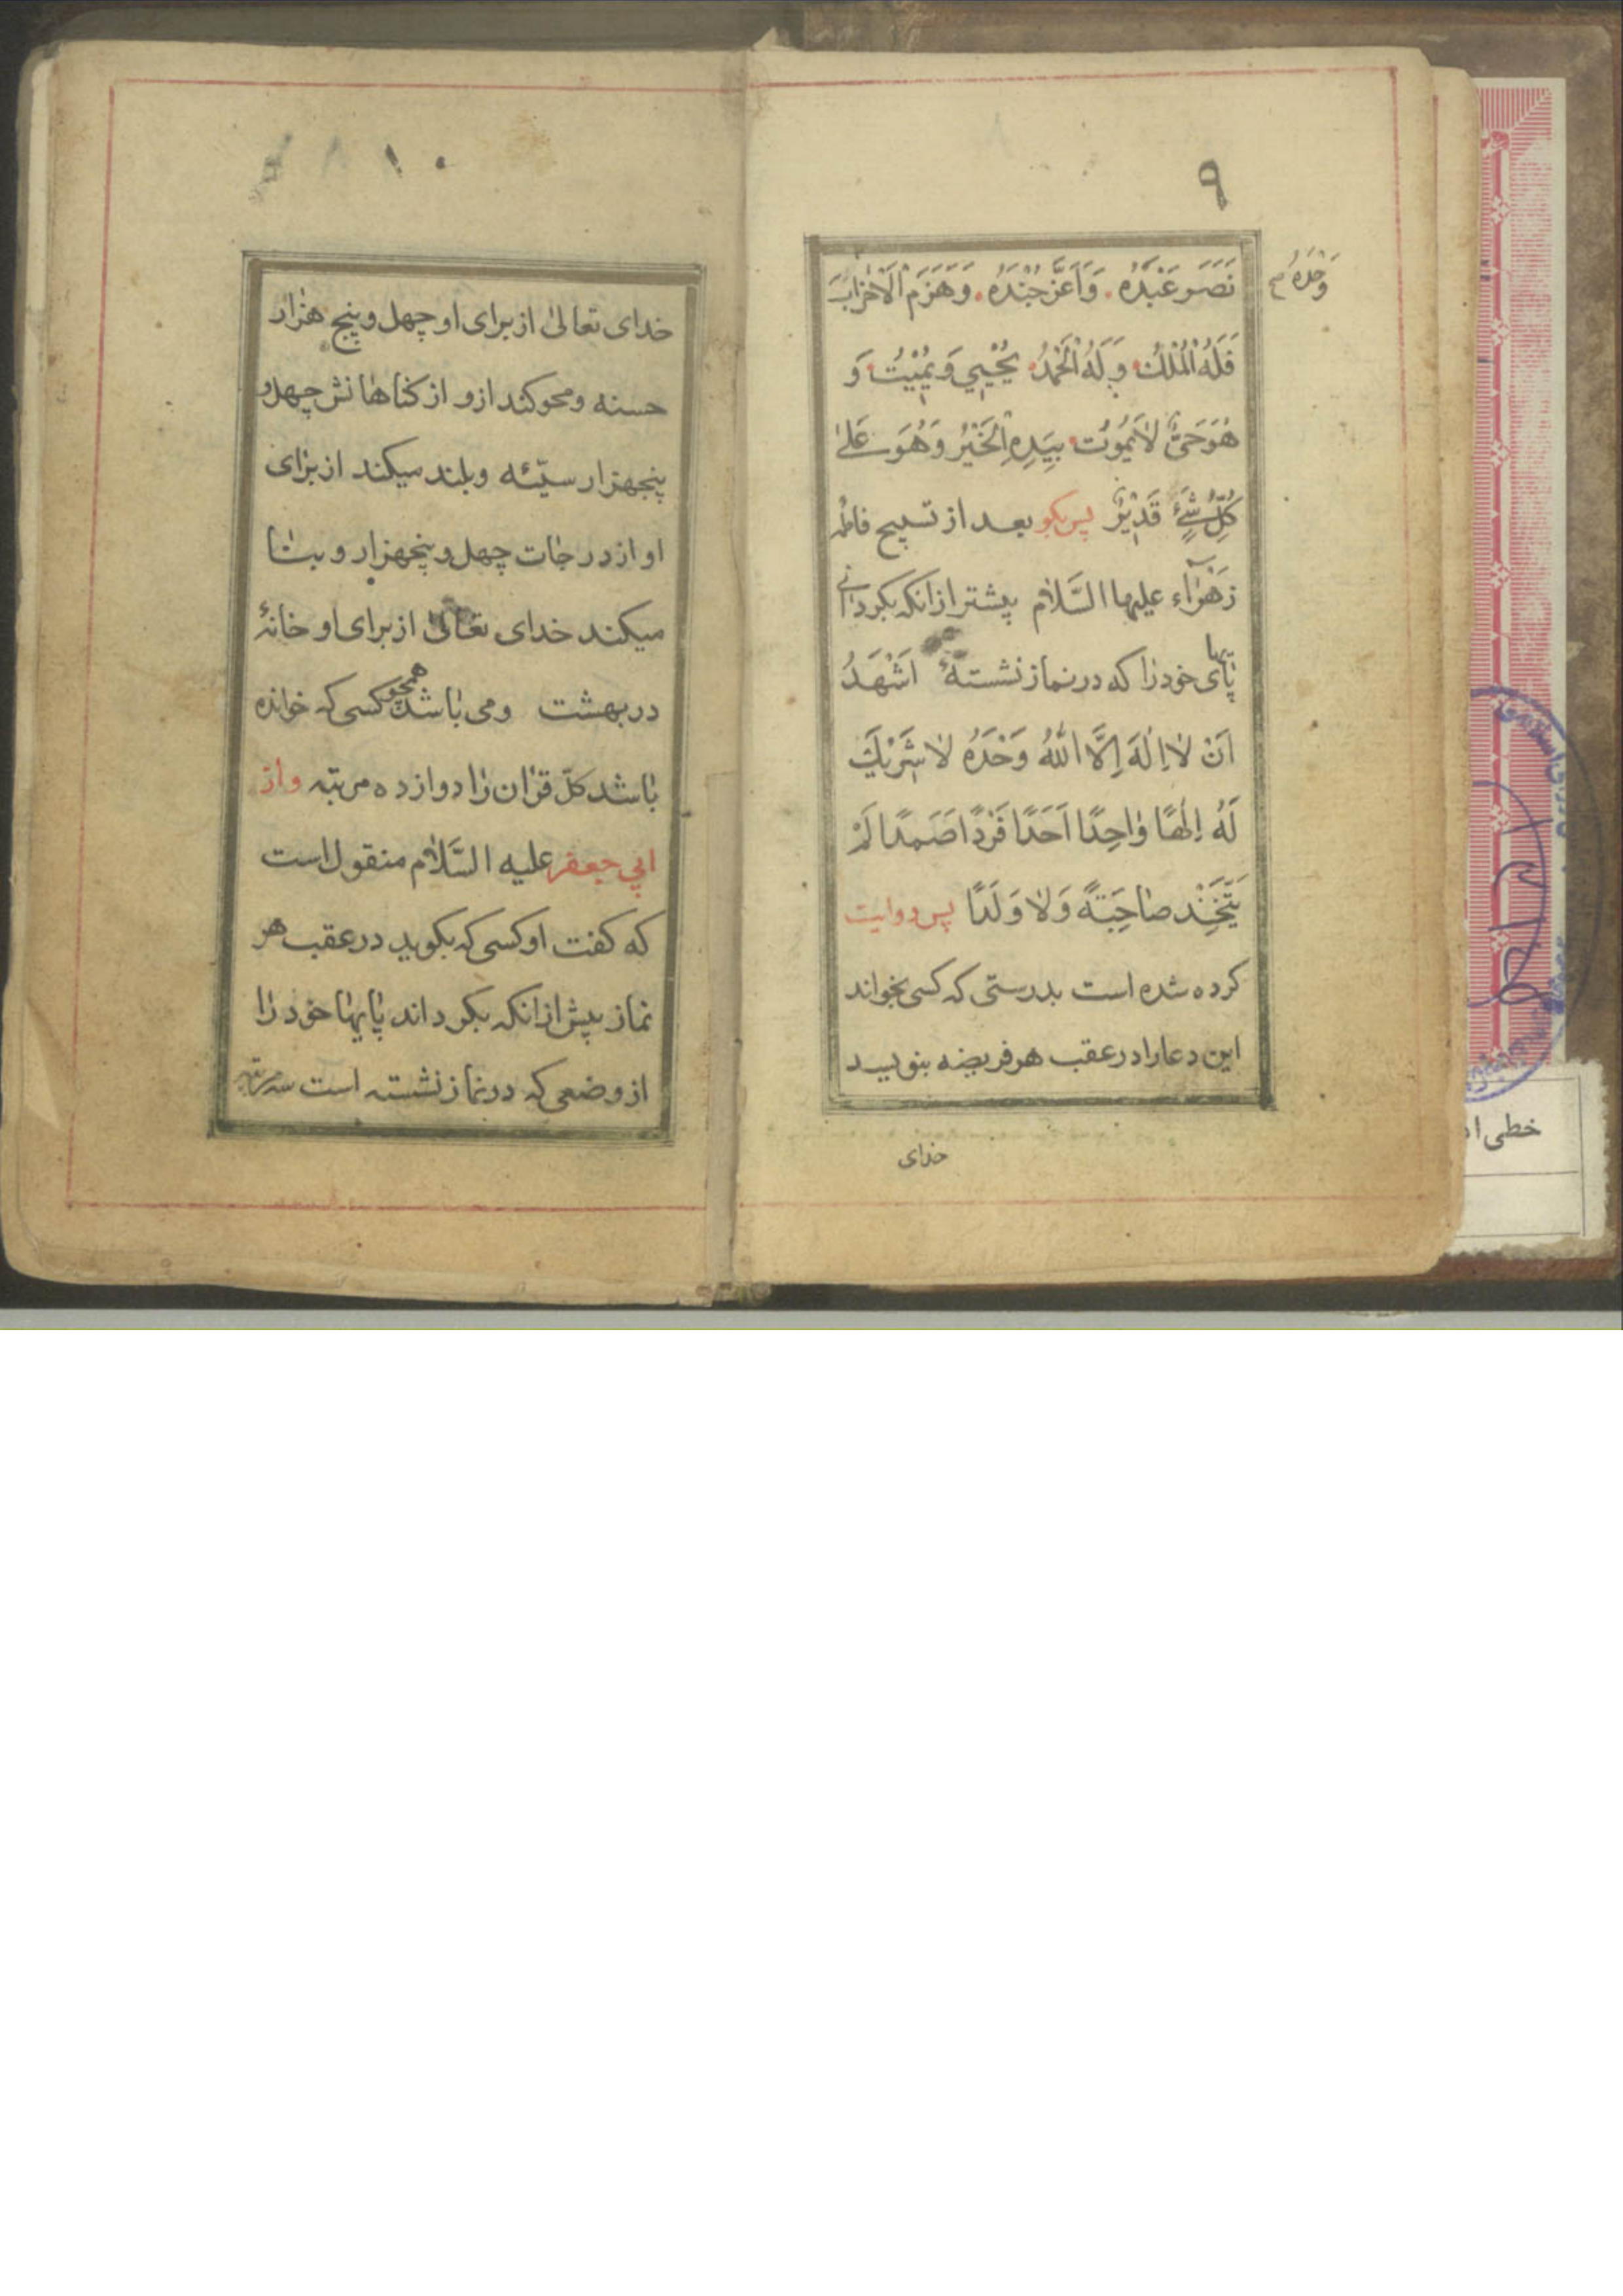 ۹
نَصَرَ عَبْدَهُ وَاَعَزَّ جُنْدَهُ وَهَزَمَ الْاَحْزَابَ
وَحْدَهُ
فَلَهُ الْمُلْكُ وَلَهُ الْحَمْدُ يُحْيِي وَيُمِيْتُ وَ
هُوَ حَيٌّ لَا يَمُوْتُ بِيَدِهِ الْخَيْرُ وَهُوَ عَلىٰ
كُلِّ شَيْءٍ قَدِيْرٌ پس بكو بعد از تسبیح فاطمهٔ
زَهْرَآء علیها السَّلام پیشتر از انکه بکردانی
پاهای خود را که در نماز نشستهٔ اَشْهَدُ
اَنْ لَا اِلٰهَ اِلَّا اللّٰهُ وَحْدَهُ لَا شَرِيْكَ
لَهُ اِلٰهًا وَاحِدًا اَحَدًا فَرْدًا صَمَدًا لَمْ
يَتَّخِذْ صَاحِبَةً وَلَا وَلَدًا پس روایت
کرده شده است بدرستی که کسی بخواند
این دعا را در عقب هر فریضه بنویسد
خدای
۱۰
خدای تعالیٰ از برای او چهل و پنج هزار
حسنه و محو کند ازو از کناهانش چهل و
پنجهزار سیّئه و بلند میکند از برای
او از درجات چهل و پنجهزار و بنا
میکند خدای تعالیٰ از برای او خانهٔ
در بهشت و می باشد همچو کسی که خوانده
باشد کلّ قران را دوازده مرتبه واز
ابی جعفر علیه السَّلام منقول است
که کفت او کسی که بکوید در عقب هر
نماز پیش از انکه بکرداند پایها خود را
از وضعی که در نماز نشسته است سه مرتبه
خطی